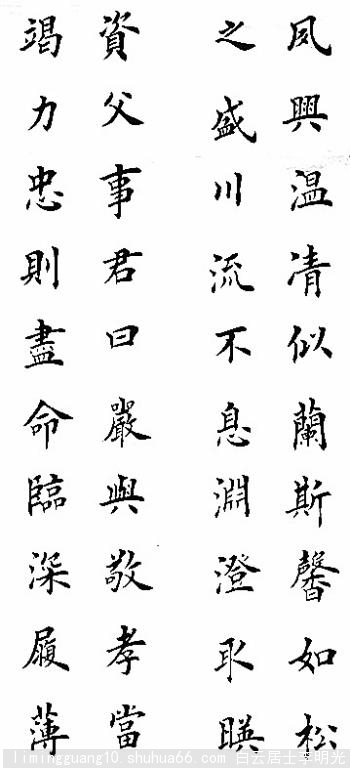 資父事君曰嚴與敬孝當
竭力忠則盡命臨深履薄
夙興温凊似蘭斯馨如松
之盛川流不息淵澄取暎
limingguang10.shuhua66.com 白云居士李明光